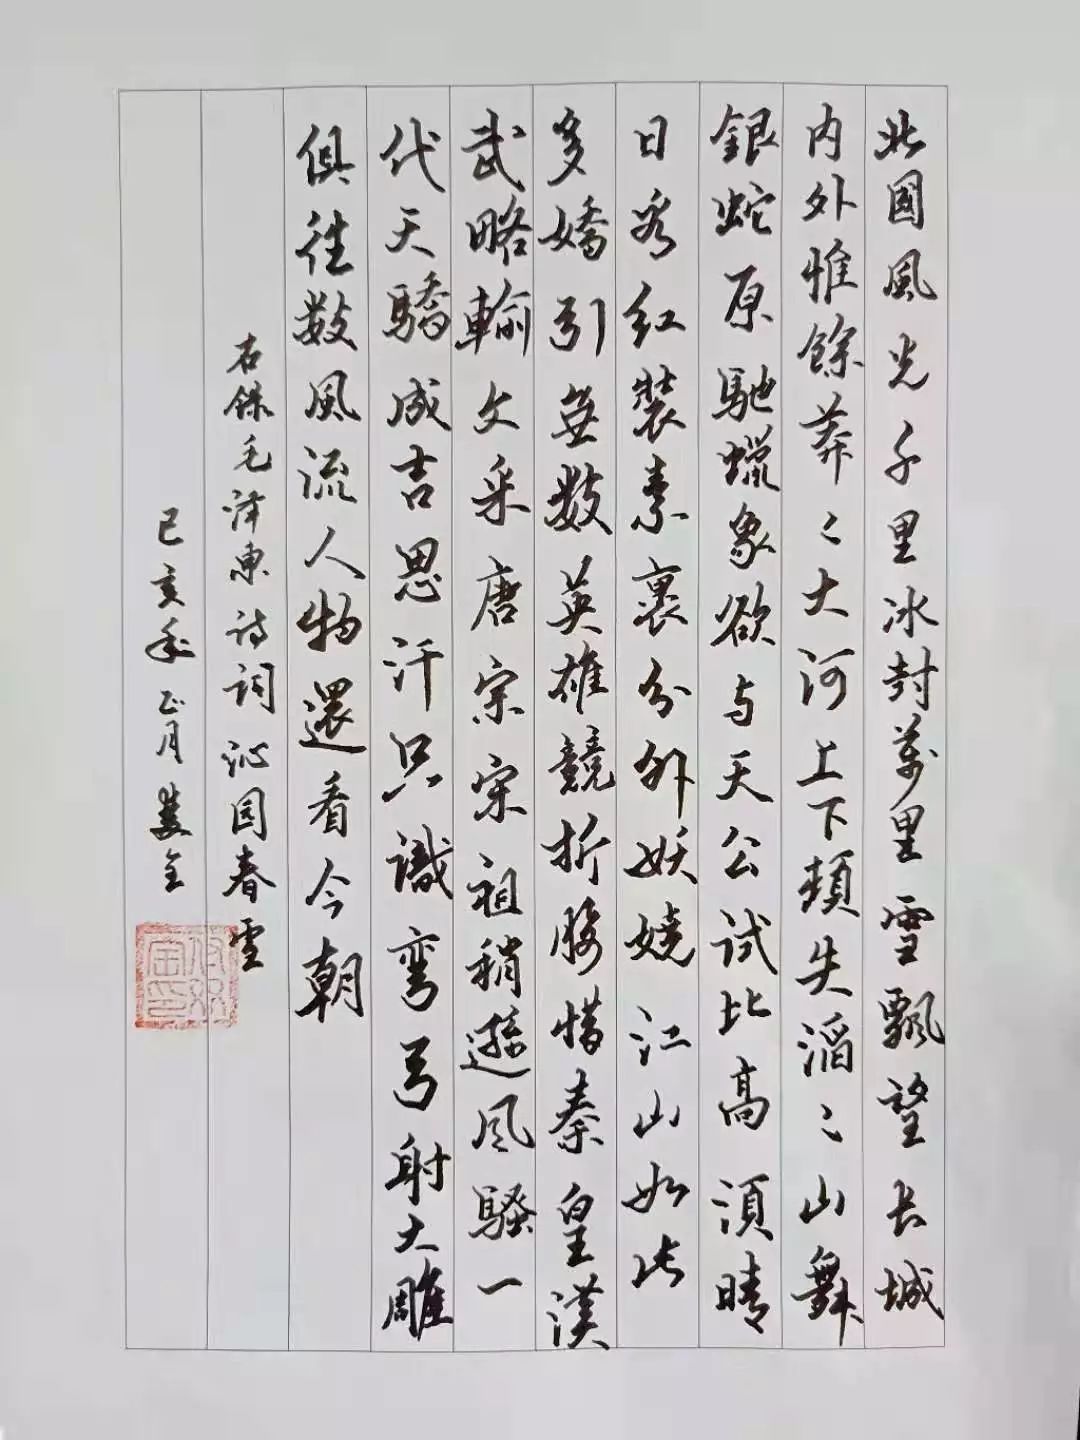 北國風光千里冰封萬里雪飄望長城
內外惟餘莽〻大河上下頓失滔〻山舞
銀蛇原馳蠟象欲与天公試比高須晴
日看红裝素裹分外妖嬈江山如此
多嬌引無數英雄競折腰惜秦皇漢
武略輸文采唐宗宋祖稍遜风騷一
代天驕成吉思汗只識彎弓射大雕
俱往數風流人物還看今朝
右錄毛泽東诗词沁园春雪
己亥年正月